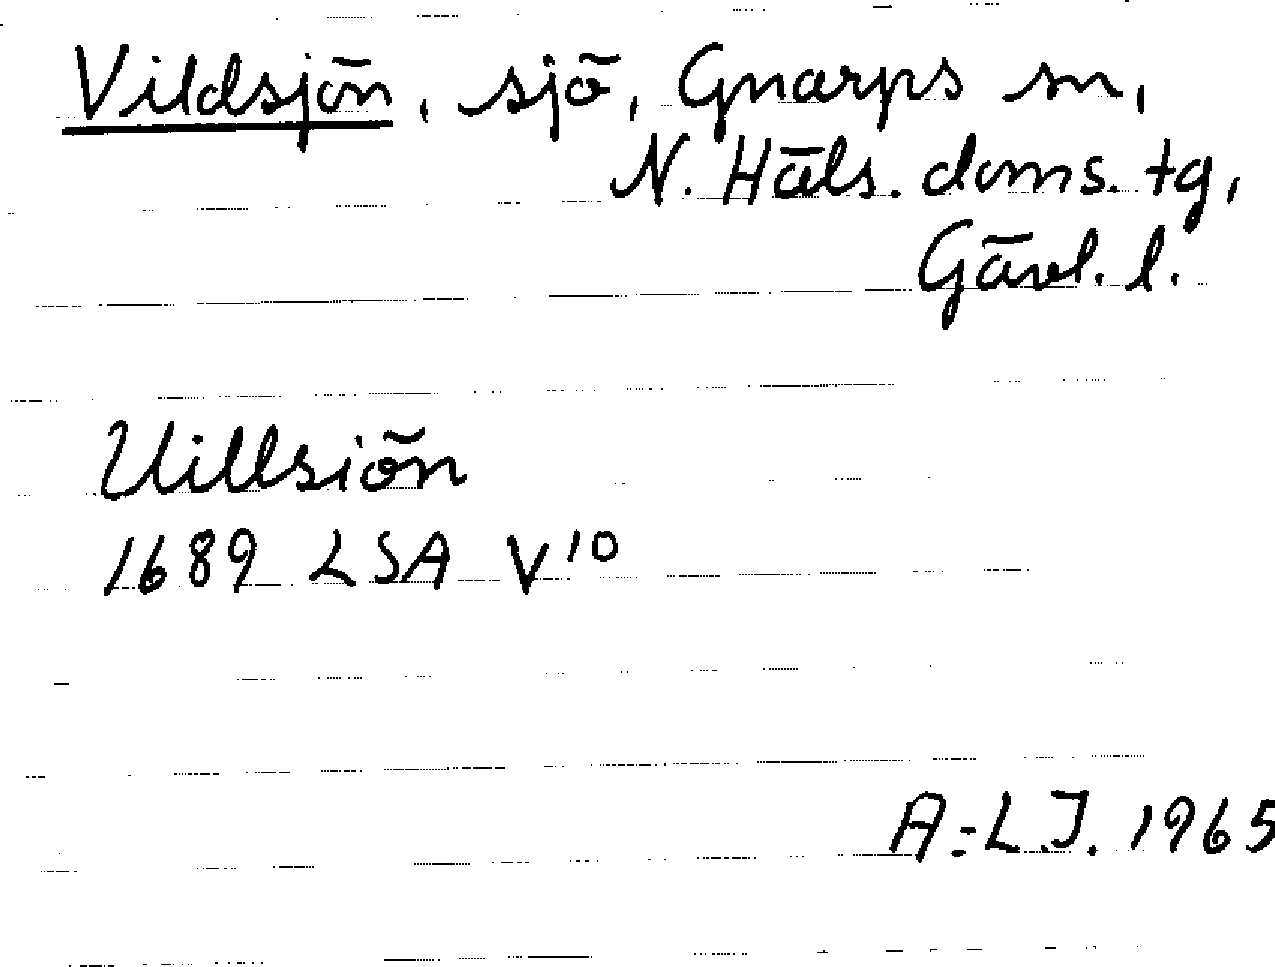 Vildsjön, sjö, Gnarps sn,
N. Häls. doms. tg,
Gävl. l.
Uillsiön
1689 LSA V¹⁰
A-L.J. 1965